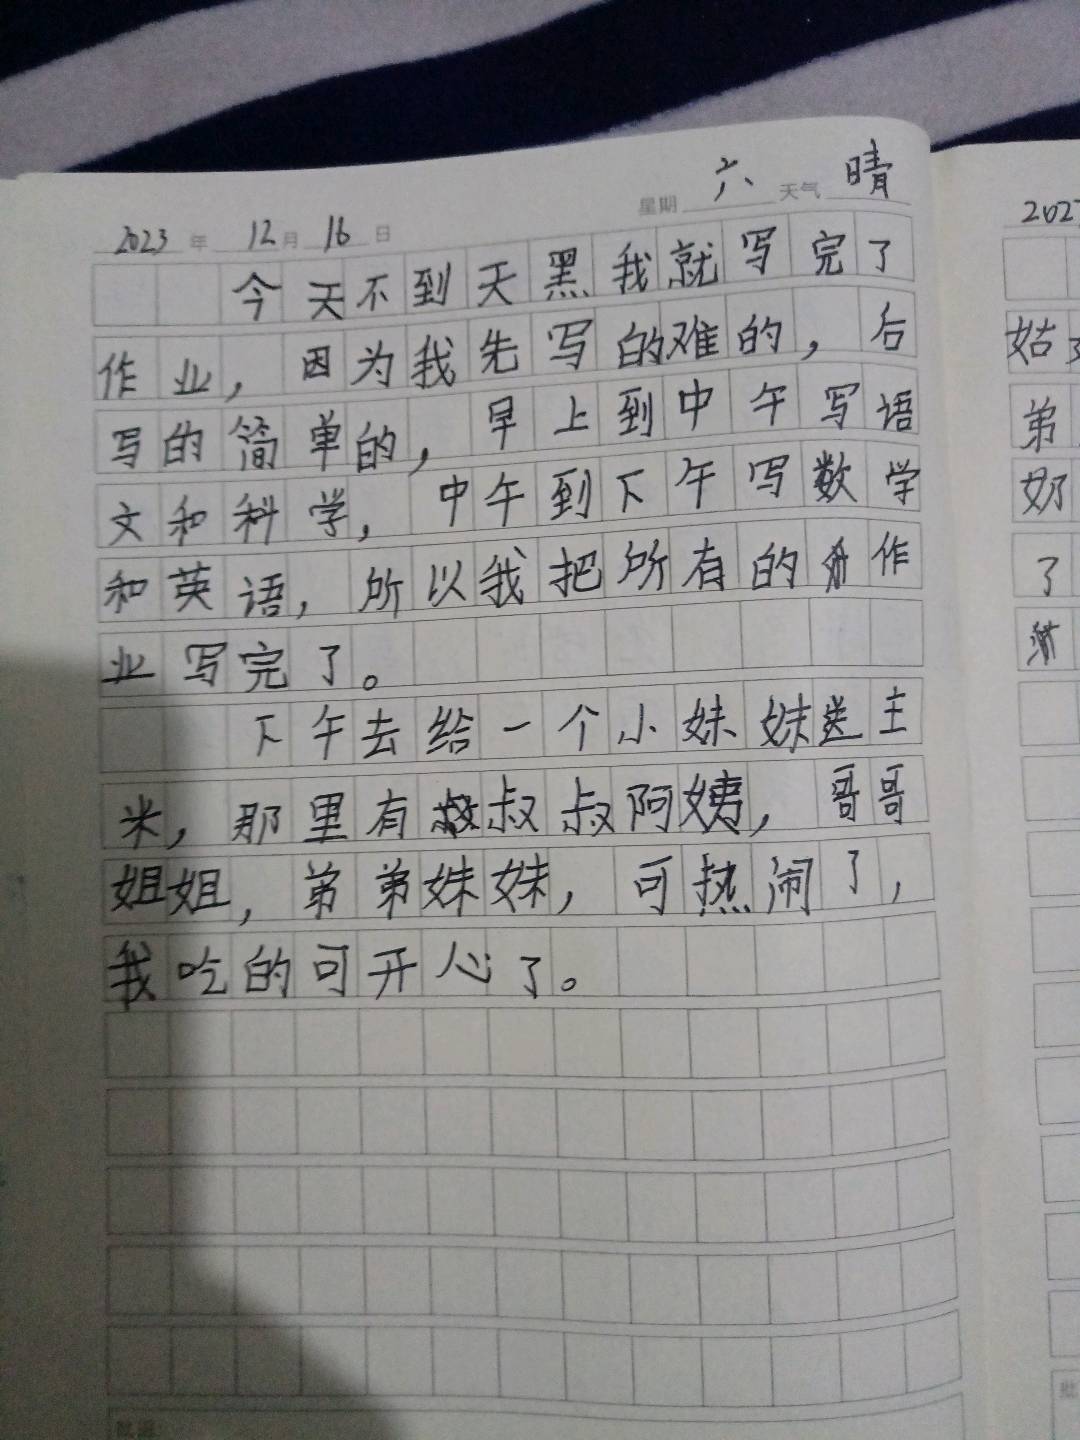 2023年 12月 16日 星期 六 天气 晴
今天不到天黑我就写完了
作业，因为我先写的难的，后
写的简单的，早上到中午写语
文和科学，中午到下午写数学
和英语，所以我把所有的作
业写完了。
下午去给一个小妹妹送主
米，那里有叔叔阿姨，哥哥
姐姐，弟弟妹妹，可热闹了，
我吃的可开心了。
批语:
202
姑
弟
奶
了
批